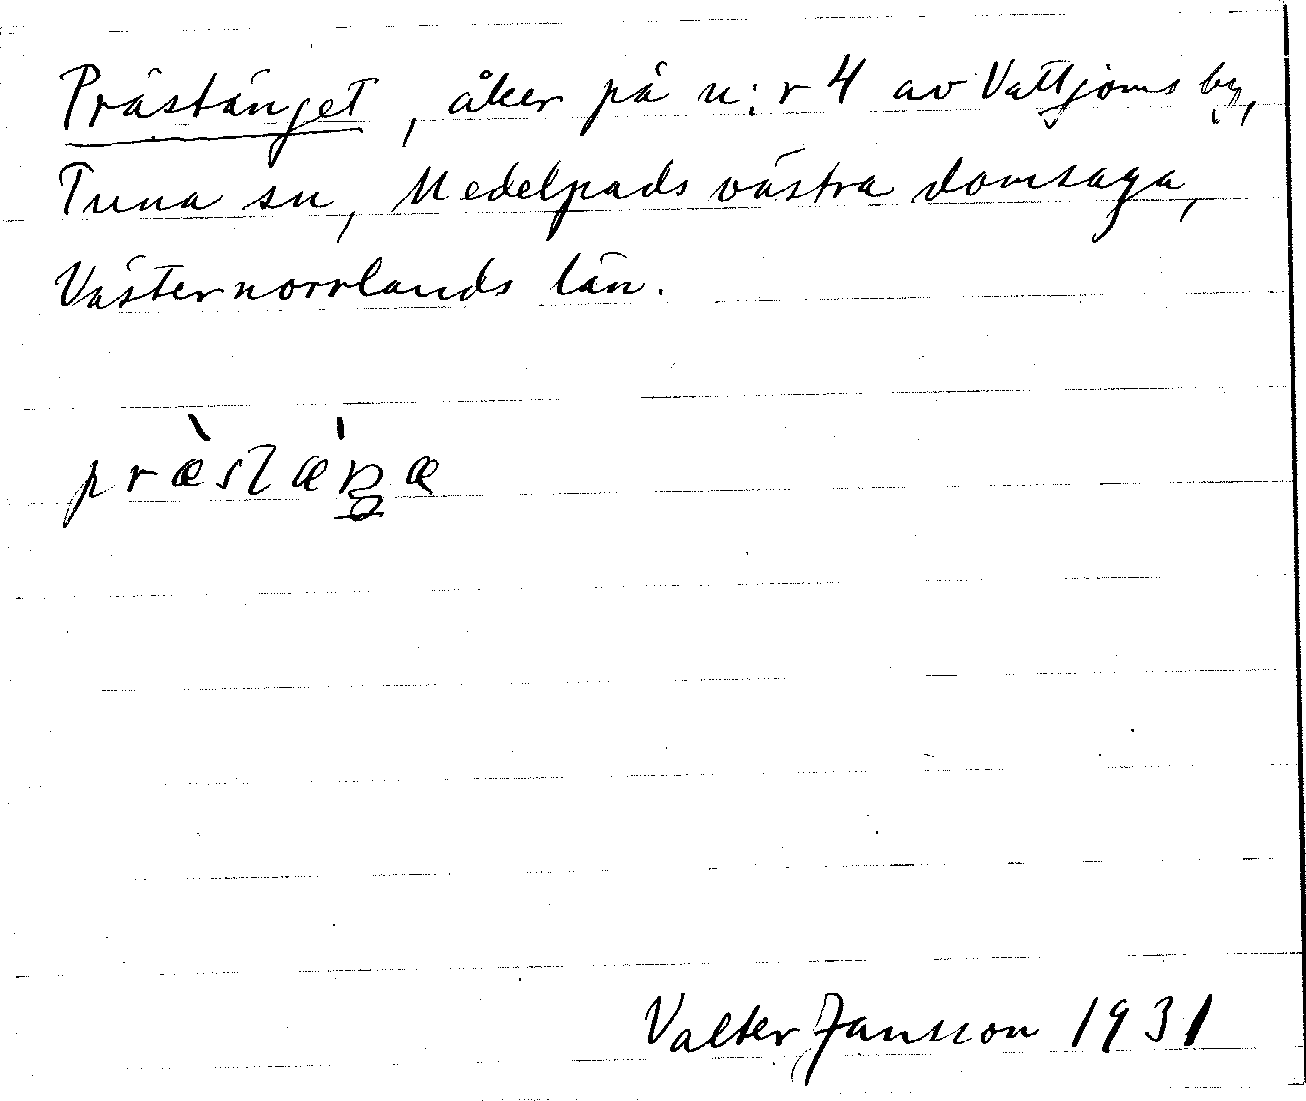 Prästänget, åker på n:r 4 av Vattjoms by,
Tuna sn, Medelpads västra domsaga,
Västernorrlands län.
præ̀stæ̀ŋæ
Valter Jansson 1931